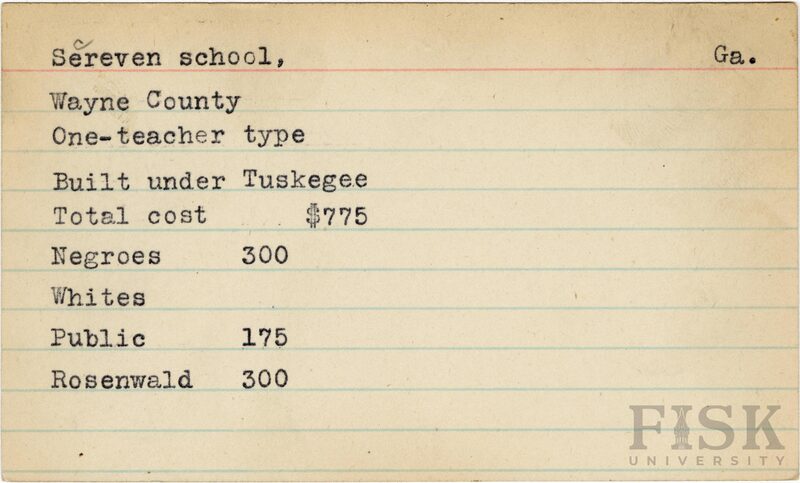 Sereven school, Ga.
Wayne County
One-teacher type
Built under Tuskegee
Total cost $775
Negroes 300
Whites
Public 175
Rosenwald 300
FISK
UNIVERSITY